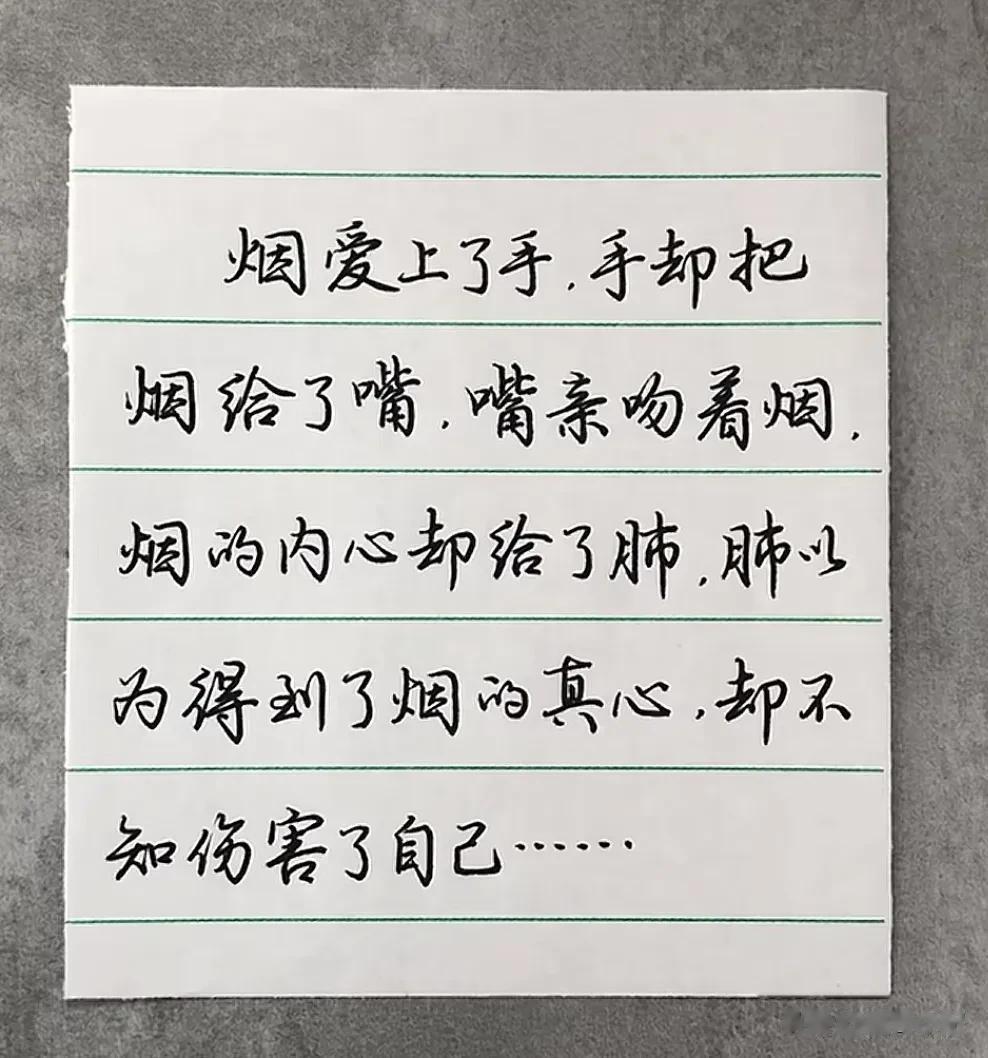 烟爱上了手,手却把
烟给了嘴,嘴亲吻着烟,
烟的内心却给了肺,肺以
为得到了烟的真心,却不
知伤害了自己……